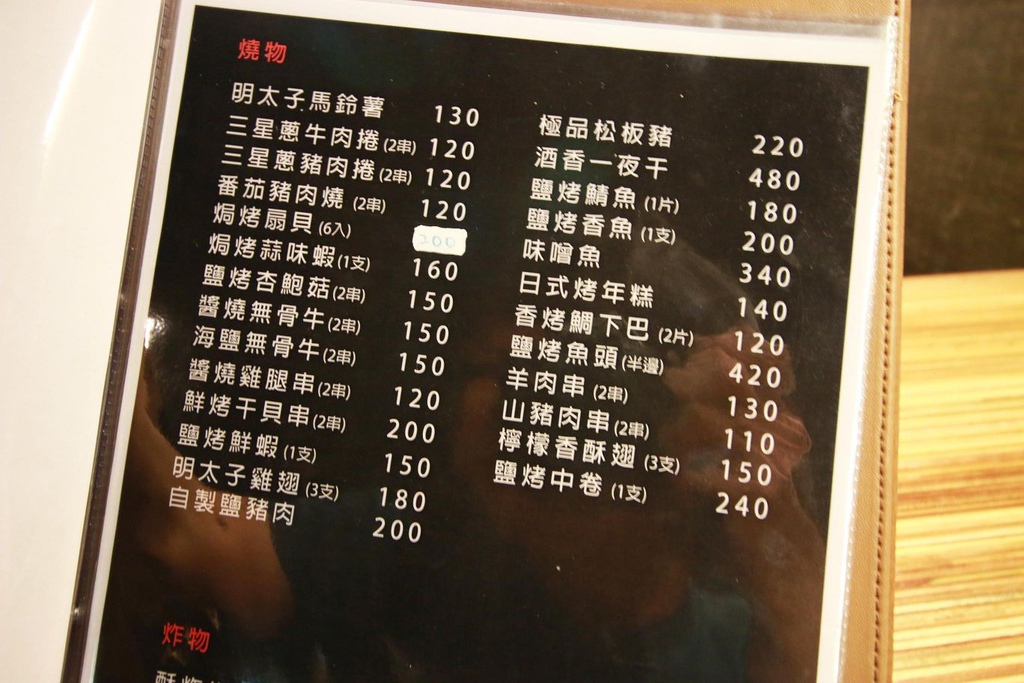 燒物
明太子馬鈴薯 130
三星蔥牛肉捲(2串) 120
三星蔥豬肉捲(2串) 120
番茄豬肉燒 (2串) 120
焗烤扇貝(6入) 200
焗烤蒜味蝦(1支) 160
鹽烤杏鮑菇(2串) 150
醬燒無骨牛(2串) 150
海鹽無骨牛(2串) 150
醬燒雞腿串(2串) 120
鮮烤干貝串(2串) 200
鹽烤鮮蝦(1支) 150
明太子雞翅(3支) 180
自製鹽豬肉 200
極品松板豬 220
酒香一夜干 480
鹽烤鯖魚(1片) 180
鹽烤香魚(1支) 200
味噌魚 340
日式烤年糕 140
香烤鯛下巴(2片) 120
鹽烤魚頭(半邊) 420
羊肉串(2串) 130
山豬肉串(2串) 110
檸檬香酥翅(3支) 150
鹽烤中卷(1支) 240
炸物